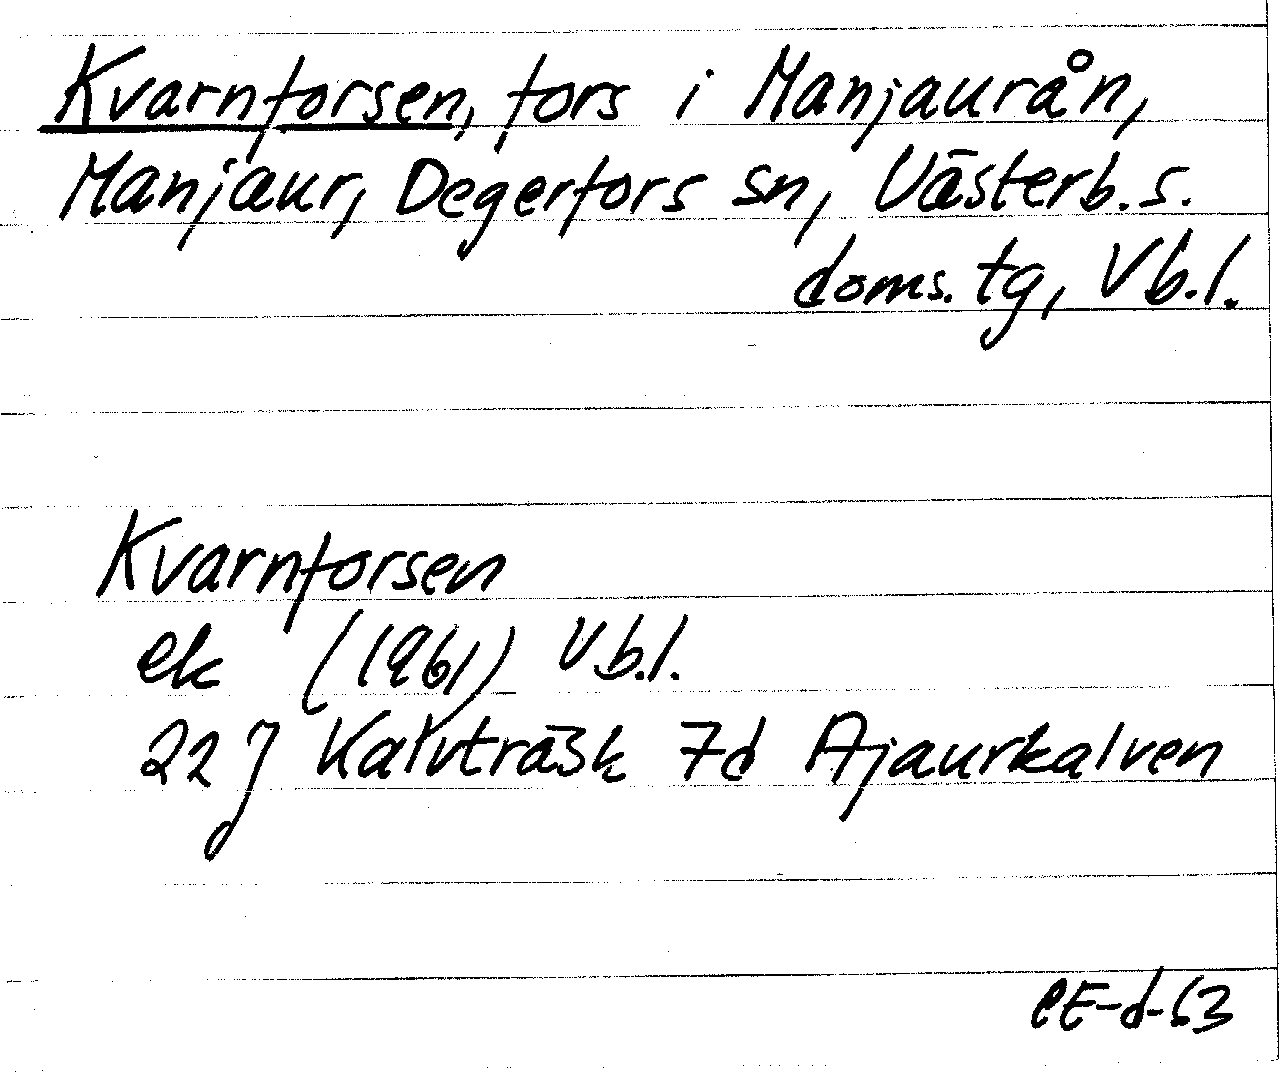 Kvarnforsen, fors i Manjaurån,
Manjaur, Degerfors sn, Västerb.s.
doms. tg, Vb.l.
Kvarnforsen
ek (1961) Vb.l.
22 J Kalvträsk 7d Ajaurkalven
CE-d-63